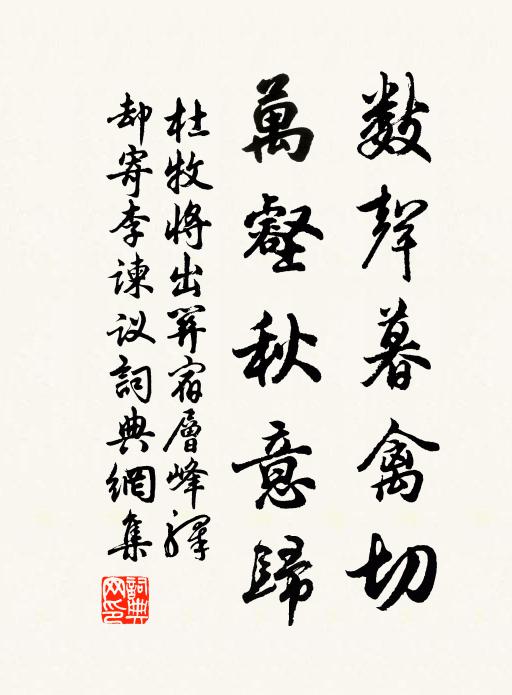 數聲暮禽切
萬壑秋意歸
杜牧將出關宿層峰驛
却寄李諫议詞典網集
詞典
网印